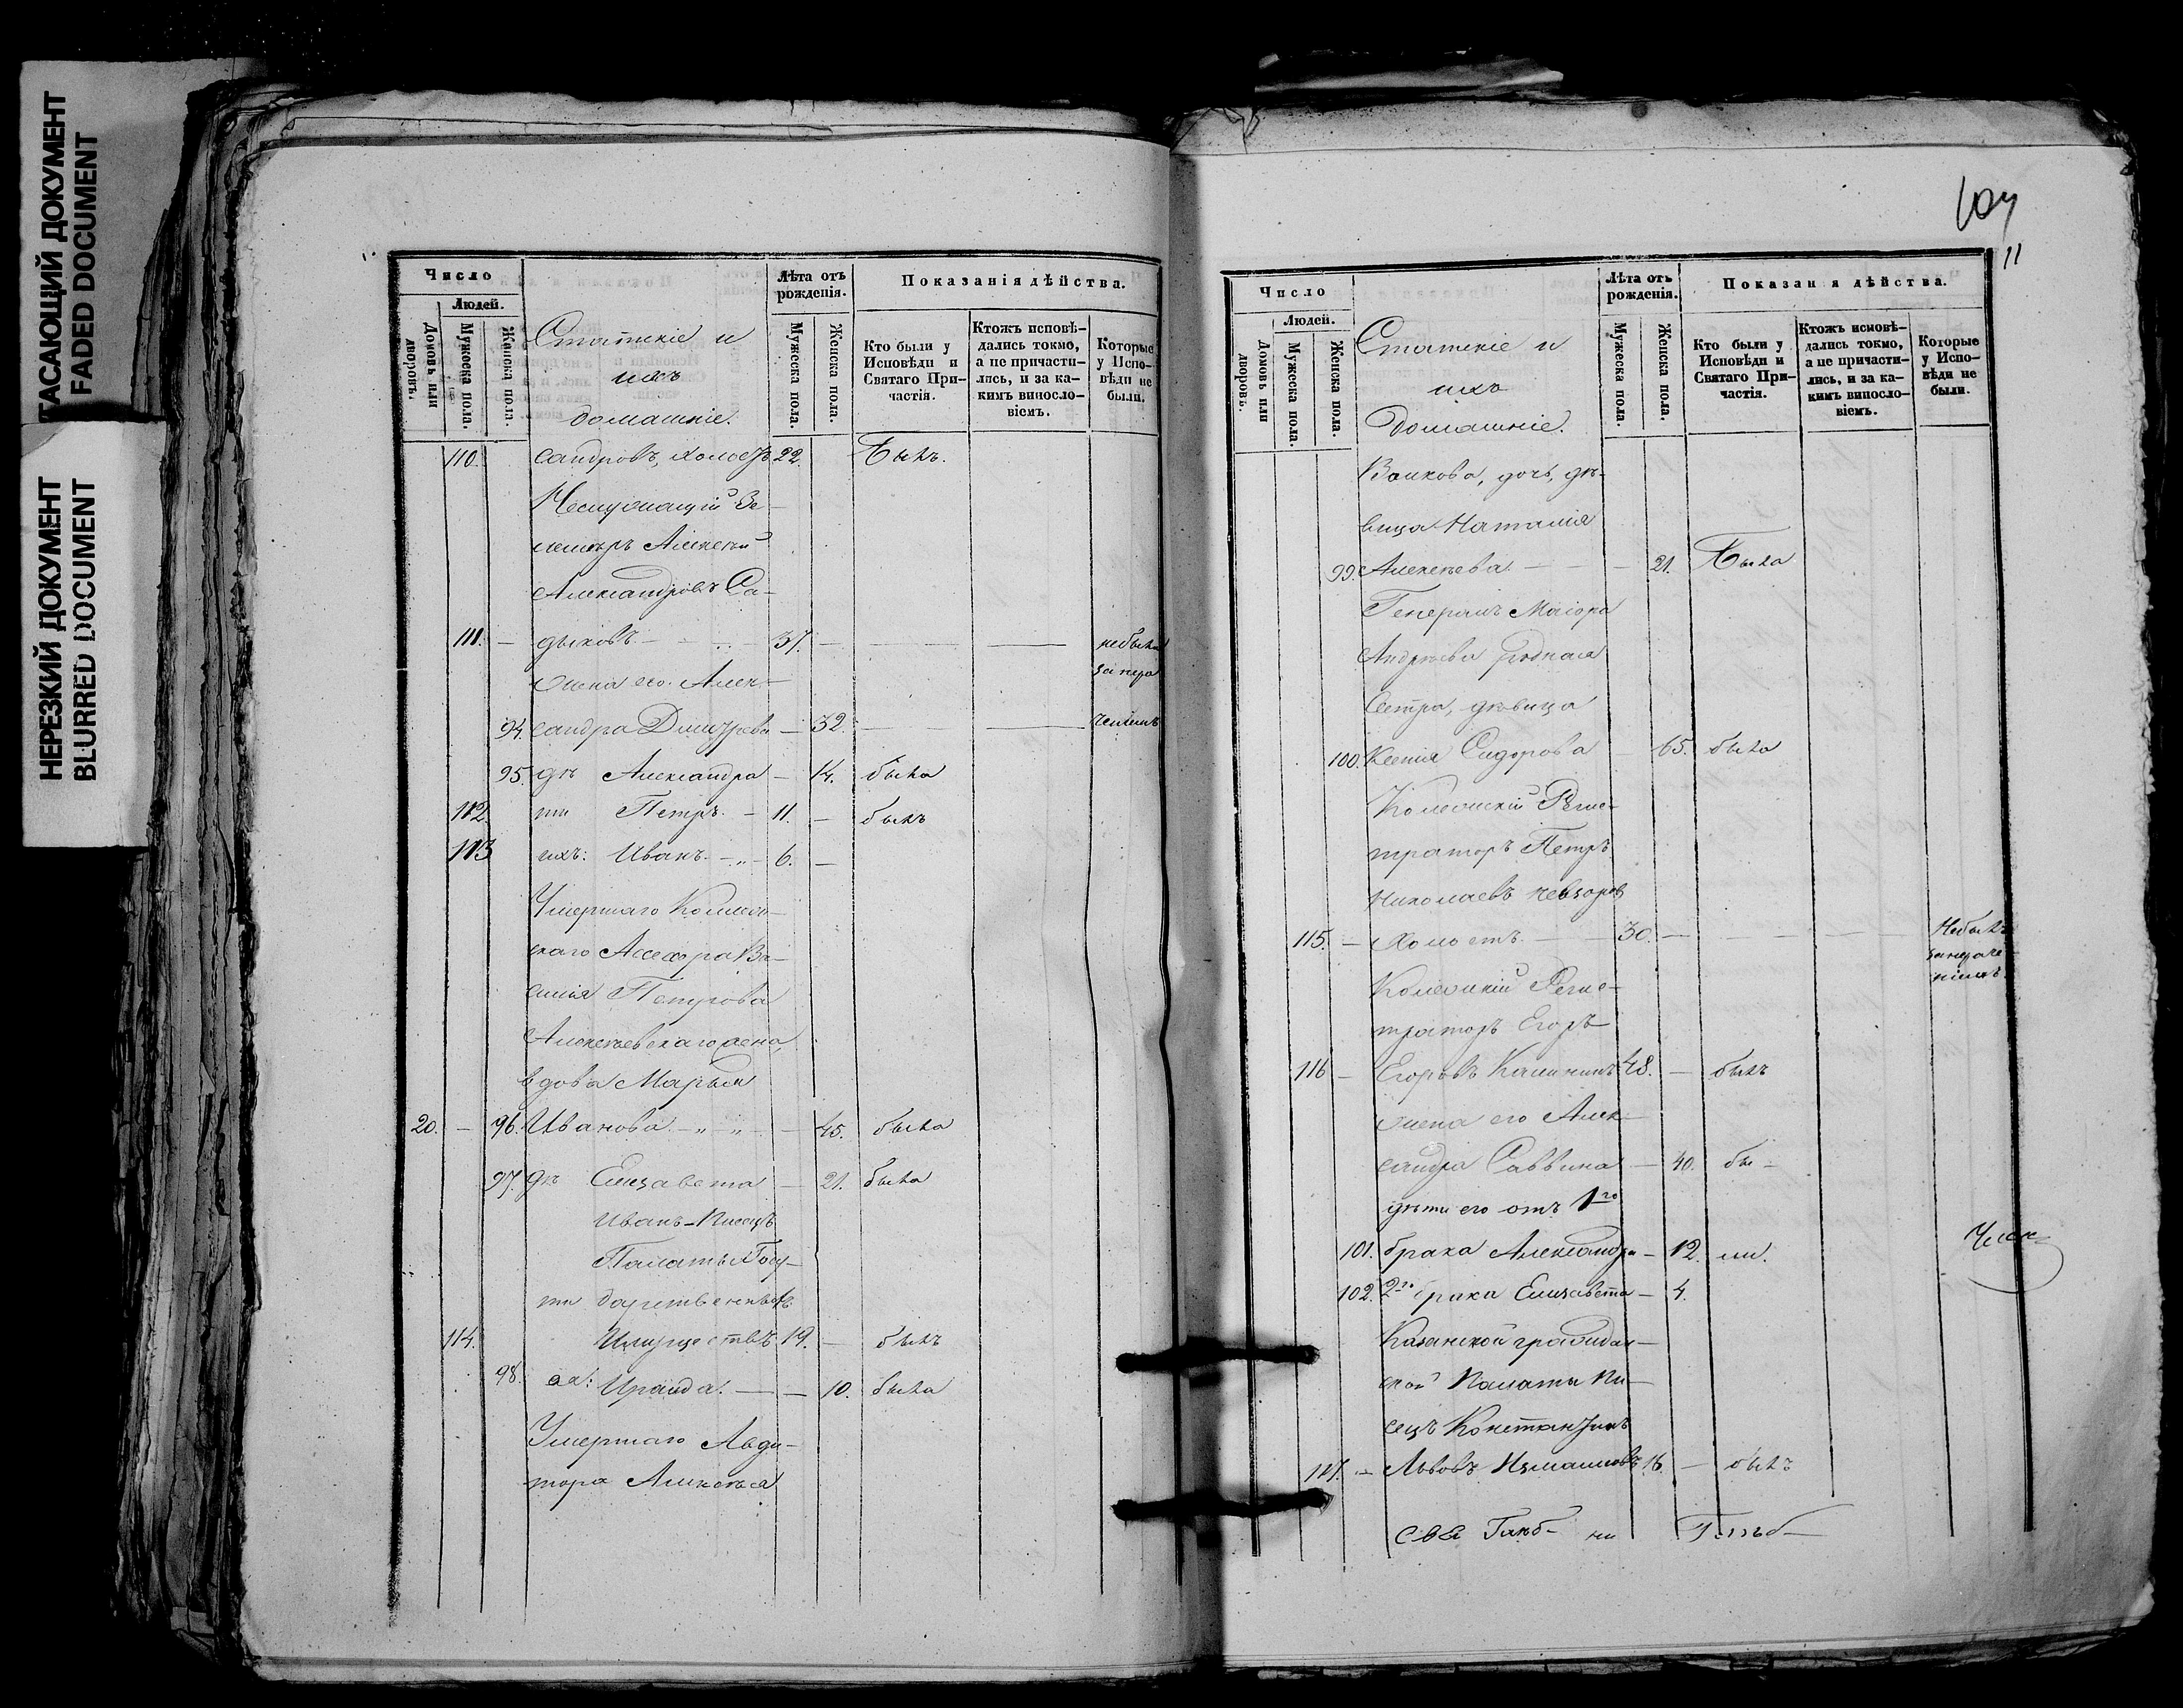 ГАСАЮЩИЙ ДОКУМЕНТ
FADED DOCUMENT
НЕРЕЗКИЙ ДОКУМЕНТ
BLURRED DOCUMENT
Число
Людей.
Домовъ или дворовъ.
Мужеска пола.
Женска пола.
Статскіе и
ихъ
домашніе.
Лѣта отъ рожденія.
Мужеска пола.
Женска пола.
Показанія дѣйства.
Кто были у Исповѣди и Святаго Причастія.
Ктожъ исповѣдались токмо, а не причастились, и за какимъ винословіемъ.
Которые у Исповѣди не были.
110. сандровъ, холостъ 22. Былъ.
Неслужащій
Алексѣй
Александровъ Са-
111. — дыковъ — 37. — небылъ
жена его Алек- за нера
94. сандра Дмитрева — 32. — ченіемъ
95. дѣ Александра — 14. была
112. ти Петръ — 11. — былъ
113 ихъ: Иванъ — 6. —
Умершаго Коллеж-
скаго Ассесора Ва-
силія Петрова
Алексѣевскаго жена,
вдова Марья
20. — 96. Иванова — 45. была
97. дѣ Елизавета — 21. была
Иванъ - Писецъ
Палаты Госу-
ти дарственныхъ
114. Имуществъ 19. — былъ
98. ея: Ираида. — 10. была
Умершаго Авди-
тора Алексѣя
104
11
Число
Людей.
Домовъ или дворовъ.
Мужеска пола.
Женска пола.
Статскіе и
ихъ
Домашніе.
Лѣта отъ рожденія.
Мужеска пола.
Женска пола.
Показан я дѣйства.
Кто были у Исповѣди и Святаго Причастія.
Ктожъ исповѣдались токмо, а не причастились, и за какимъ винословіемъ.
Которые у Исповѣди не были.
Волкова, дочь, дѣ-
вица Наталія
99. Алексѣева — 21. Была
Генералъ Маіора
Андреева родная
Сестра, дѣвица
100. Ксенія Сидорова — 65. была
Колежскій Регис-
траторъ Петръ
Николаевъ Невзоровъ
115. — Холостъ — 30. — Небылъ
за нераче
ніемъ
Колежскій Регис-
траторъ Егоръ
116 — Егоровъ Калининъ 48. — былъ
жена его Алек-
сандра Саввина — 40. бы-
дѣти его отъ 1го
101. брака Александра — 12. ли.
102. 2го брака Елизавета — 4.
Казанской граждан-
ской Палаты Пи-
сецъ Константинъ
117. — Львовъ Измаиловъ 18. — былъ